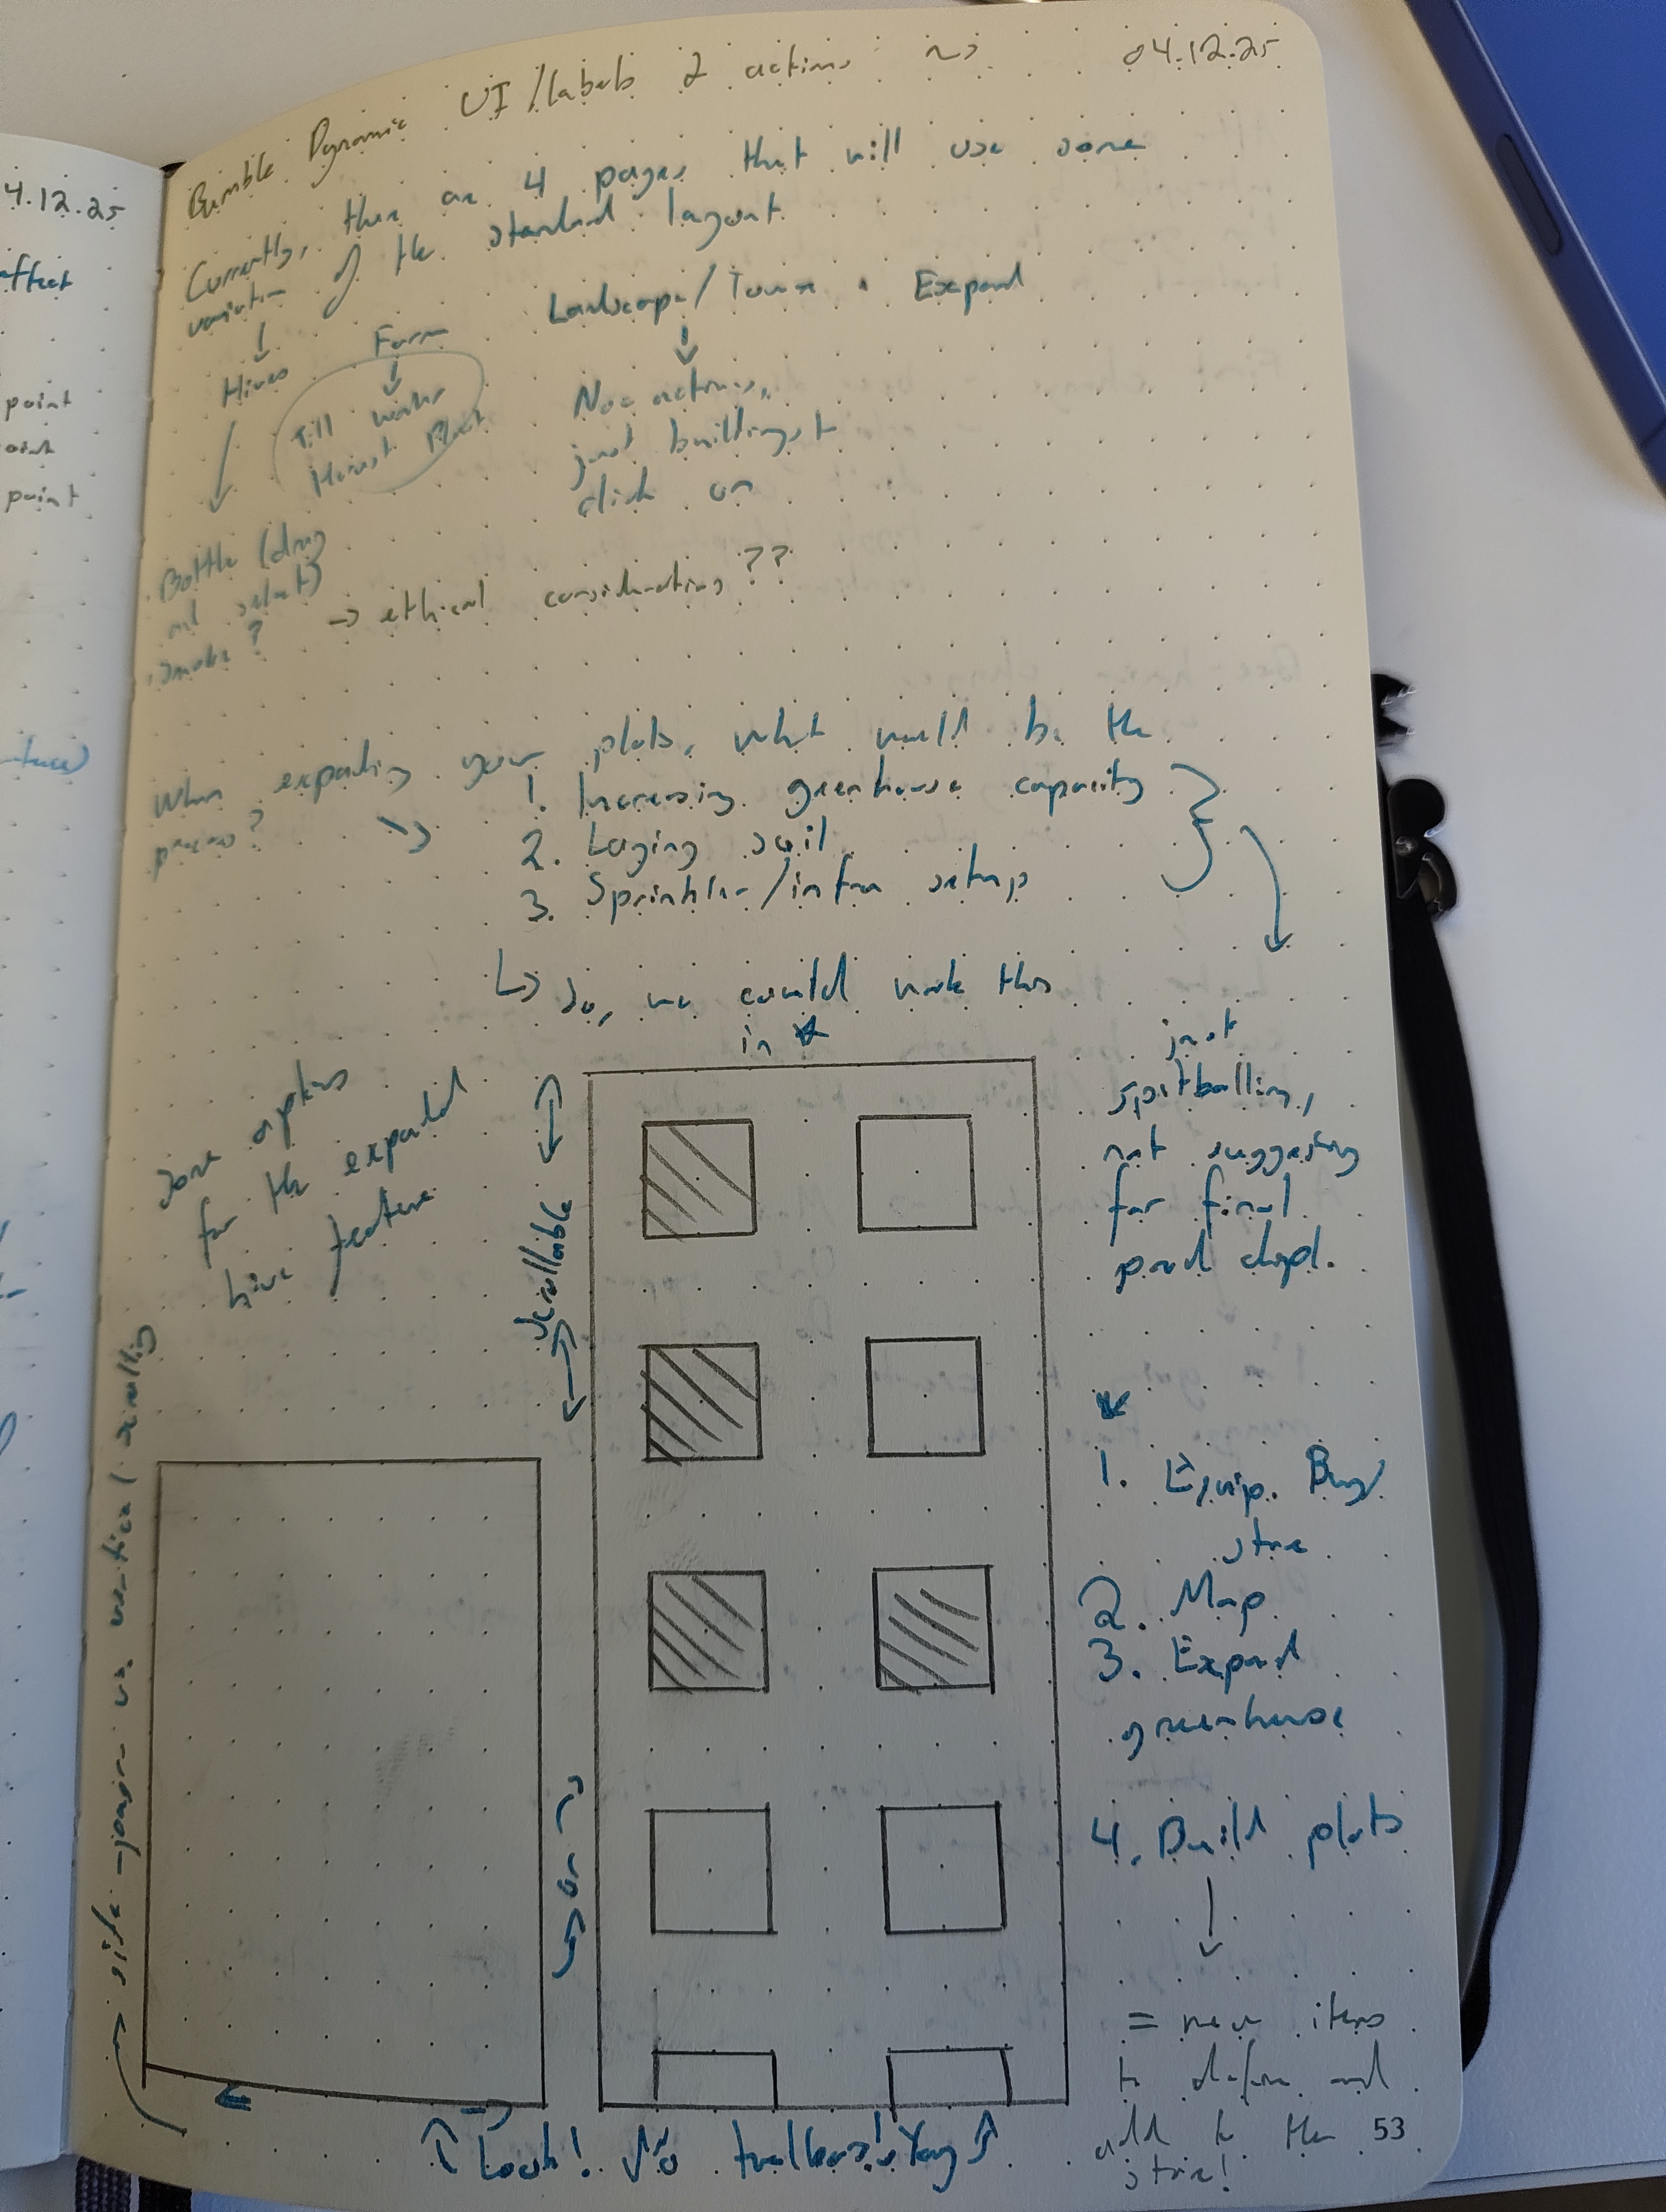 4.12.25
effect
point
oint
point
Bumble Dynamic UI/labels 2 actions ~> 04.12.25
Currently, there are 4 pages that will use some
variation of the standard layout
Hives
Farm
Landscape/Town
Expand
Till water
Harvest Plant
No actions,
just buildings t
click on
Bottle (drag
nd select)
smoke?
→ ethical considerations??
When expanding your plots, what would be the
process?
1. Increasing greenhouse capacity
2. Laying soil
3. Sprinkler/infra setup
↳ So, we could work this
in ★
just
spitballing,
not suggesting
for final
prod depl.
Some options
for the expanded
hive feature
Scrollable
★
1. Equip. Buy
store
2. Map
3. Expand
greenhouse
4. Build plots
= new items
to define and
add to the
store!
side-ways vs. vertical scrolling
~ or ~
↑ Look! No trolleys! Yay ↑
53